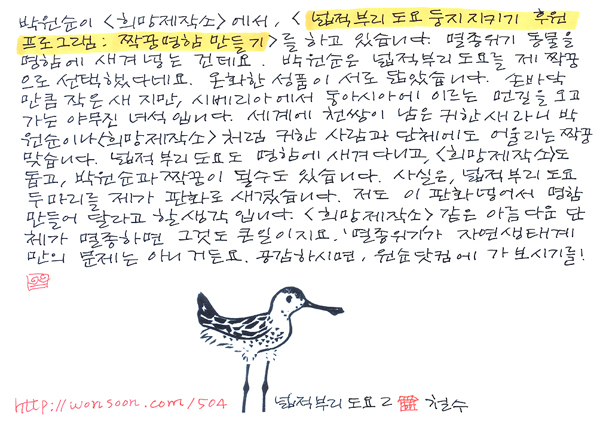 박원순이 <희망제작소>에서, <넓적부리도요 둥지 지키기 후원
프로그램: 짝꿍명함 만들기>를 하고 있습니다. 멸종위기 동물을
명함에 새겨넣는 건데요. 박원순은 넓적부리도요를 제 짝꿍
으로 선택했다데요. 온화한 성품이 서로 닮았습니다. 손바닥
만큼 작은 새지만, 시베리아에서 동아시아에 이르는 먼길을 오고
가는 야무진 녀석입니다. 세계에 천쌍이 남은 귀한 새라니 박
원순이나 <희망제작소>처럼 귀한 사람과 단체에도 어울리는 짝꿍
맞습니다. 넓적부리도요도 명함에 새겨다니고, <희망제작소>도
돕고, 박원순과 짝꿍이 될수도 있습니다. 사실은, 넓적부리도요
두마리를 제가 판화로 새겼습니다. 저도 이 판화 찍어서 명함
만들어 달라고 할 생각입니다. <희망제작소> 같은 아름다운 단
체가 멸종하면 그것도 큰일이지요. '멸종위기'가 자연생태계
만의 문제는 아니거든요. 공감하시면, 원순닷컴에 가보시기를!
http://wonsoon.com/504 넓적부리도요 2 철수